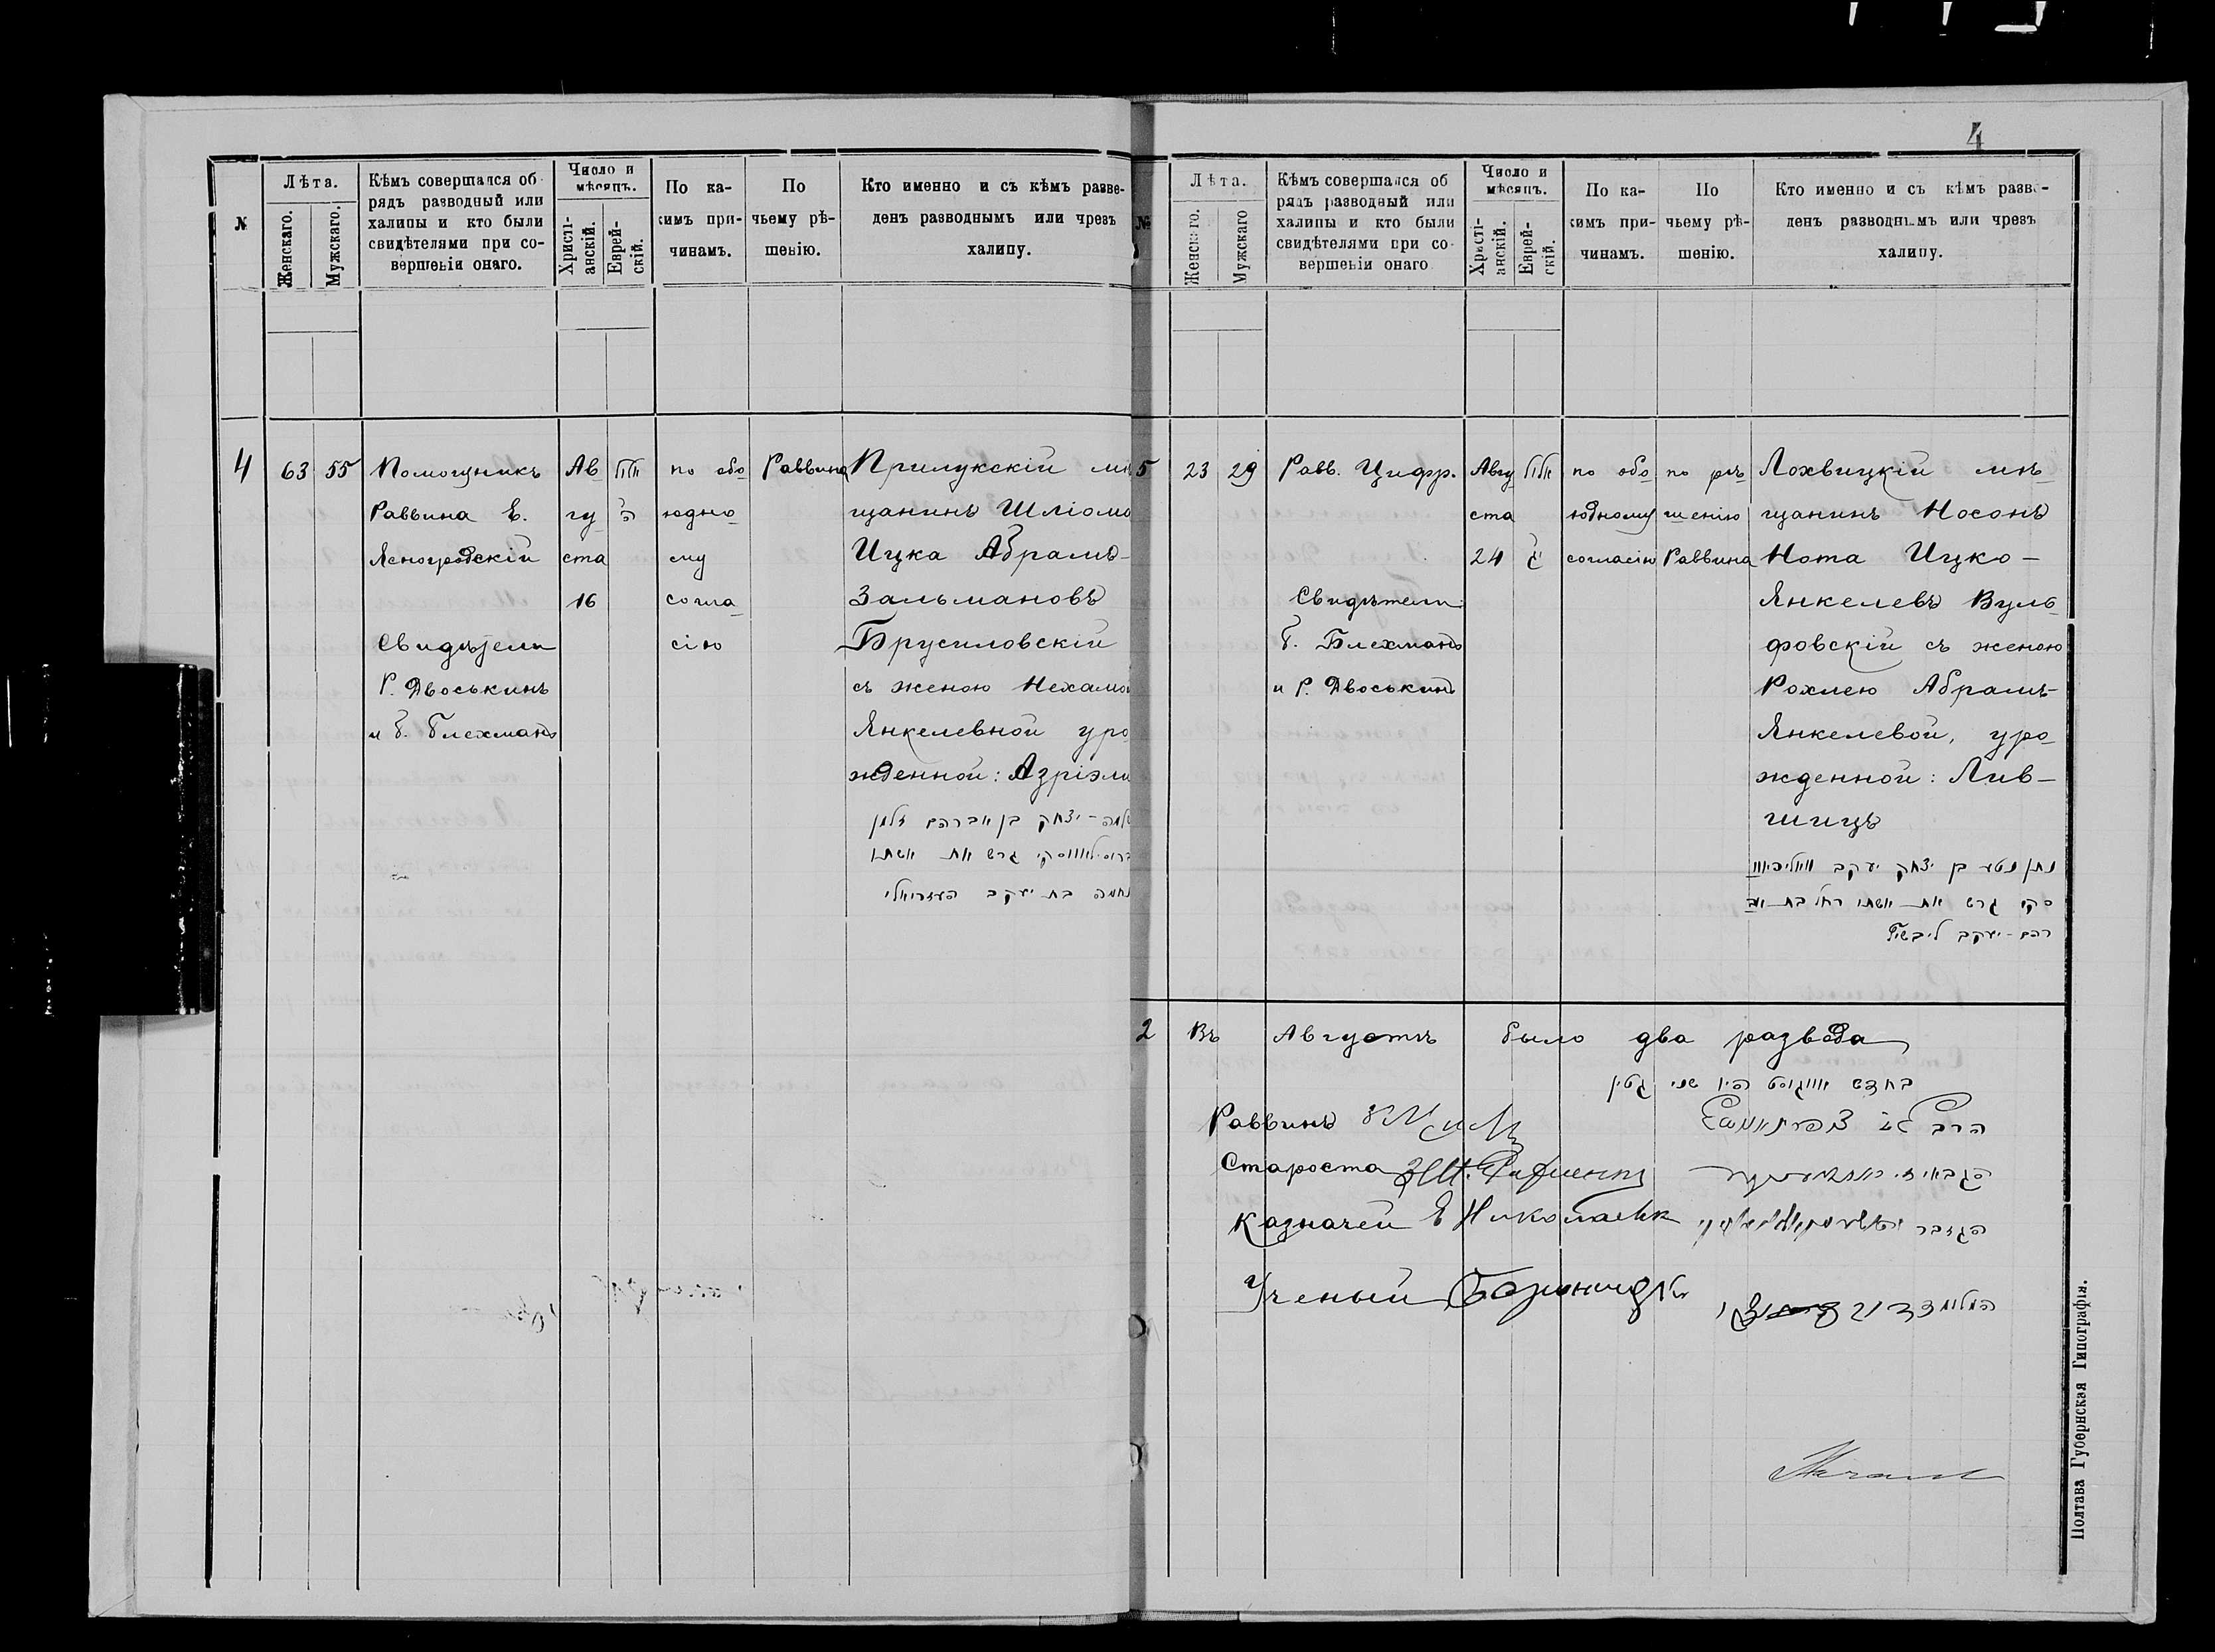 4
№
Лѣта.
Женскаго.
Мужскаго.
Кѣмъ совершался об
рядъ разводный или
халипы и кто были
свидѣтелями при со-
вершеніи онаго.
Число и
мѣсяцъ.
Христі-
анскій.
Еврей-
скій.
По ка-
кимъ при-
чинамъ.
По
чьему рѣ-
шенію.
Кто именно и съ кѣмъ разве-
денъ разводнымъ или чрезъ
халипу.
4
63
55
Помощникъ
Раввина Е.
Ясногродскій
Свидѣтели
Г. Двоськинъ
и Б. Блехманъ
Ав-
гу-
ста
16
по обо
юдно-
му
согла-
сію
Раввина
Прилукскій мѣ
щанинъ Шліома
Ицка Абрамъ-
Зальмановъ
Брусиловскій
съ женою Нехамо
Янкелевной уро
жденной: Азріэли
שלמה - יצחק בן אברהם זלמן
ברוסילאווסקי גרש את אשתו
נחמה בת יעקב העזריאלי
№
Лѣта.
Женскаго.
Мужскаго
Кѣмъ совершался об
рядъ разводный или
халипы и кто были
свидѣтелями при со
вершеніи онаго
Число и
мѣсяцъ.
Христі-
анскій.
Еврей-
скій.
По ка-
кимъ при-
чинамъ.
По
чьему рѣ-
шенію.
Кто именно и съ кѣмъ разве-
денъ разводнымъ или чрезъ
халипу.
5
23
29
Равв. Цифр.
Свидѣтели:
Б. Блехманъ
и Г. Двоськинъ
Авгу-
ста
24
по обо-
юдному
согласію
по рѣ-
шенію
Раввина
Лохвицкій мѣ-
щанинъ Носонъ
Нота Ицко-
Янкелевъ Вуль-
фовскій съ женою
Рохлею Абрамъ-
Янкелевой, уро-
жденной: Лив-
шицъ
נתן נטע בן יצחק יעקב
סקי גרש את אשתו רחל בת אב
רהם - יעקב ליבשיץ
2 Въ Августѣ было два развода
בחדש אווגוסט היו שני גטין
Раввинъ
הרב
Староста
הגבאי
Казначей Е Николаевск
הגזבר
Ученый
המלומד
Полтава Губернская Типографія.